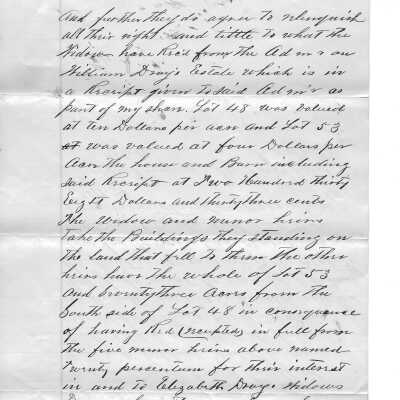 And further they do agree to relinquish
all their right and tittle to what the
Widow have Rec'd from the Adm r on
William Dray's Estate which is in
a Receipt given to said Adm r as
part of my share. Lot 48 was valued
at ten Dollars per acre and Lot 53
was valued at four Dollars per
Acre the house and Barn including
said Receipt at Two Hundred thirty
Eight Dollars and thirty three cents
The Widow and minor heirs
take the Buildings they standing on
the land that fell to them the other
heirs have the whole of Lot 53
and twenty three Acres from the
South side of Lot 48 in consequence
of having Red (receipted) in full from
the five minor heirs above named
Twenty percentum for their interest
in and to Elizabeth Dray's Widows